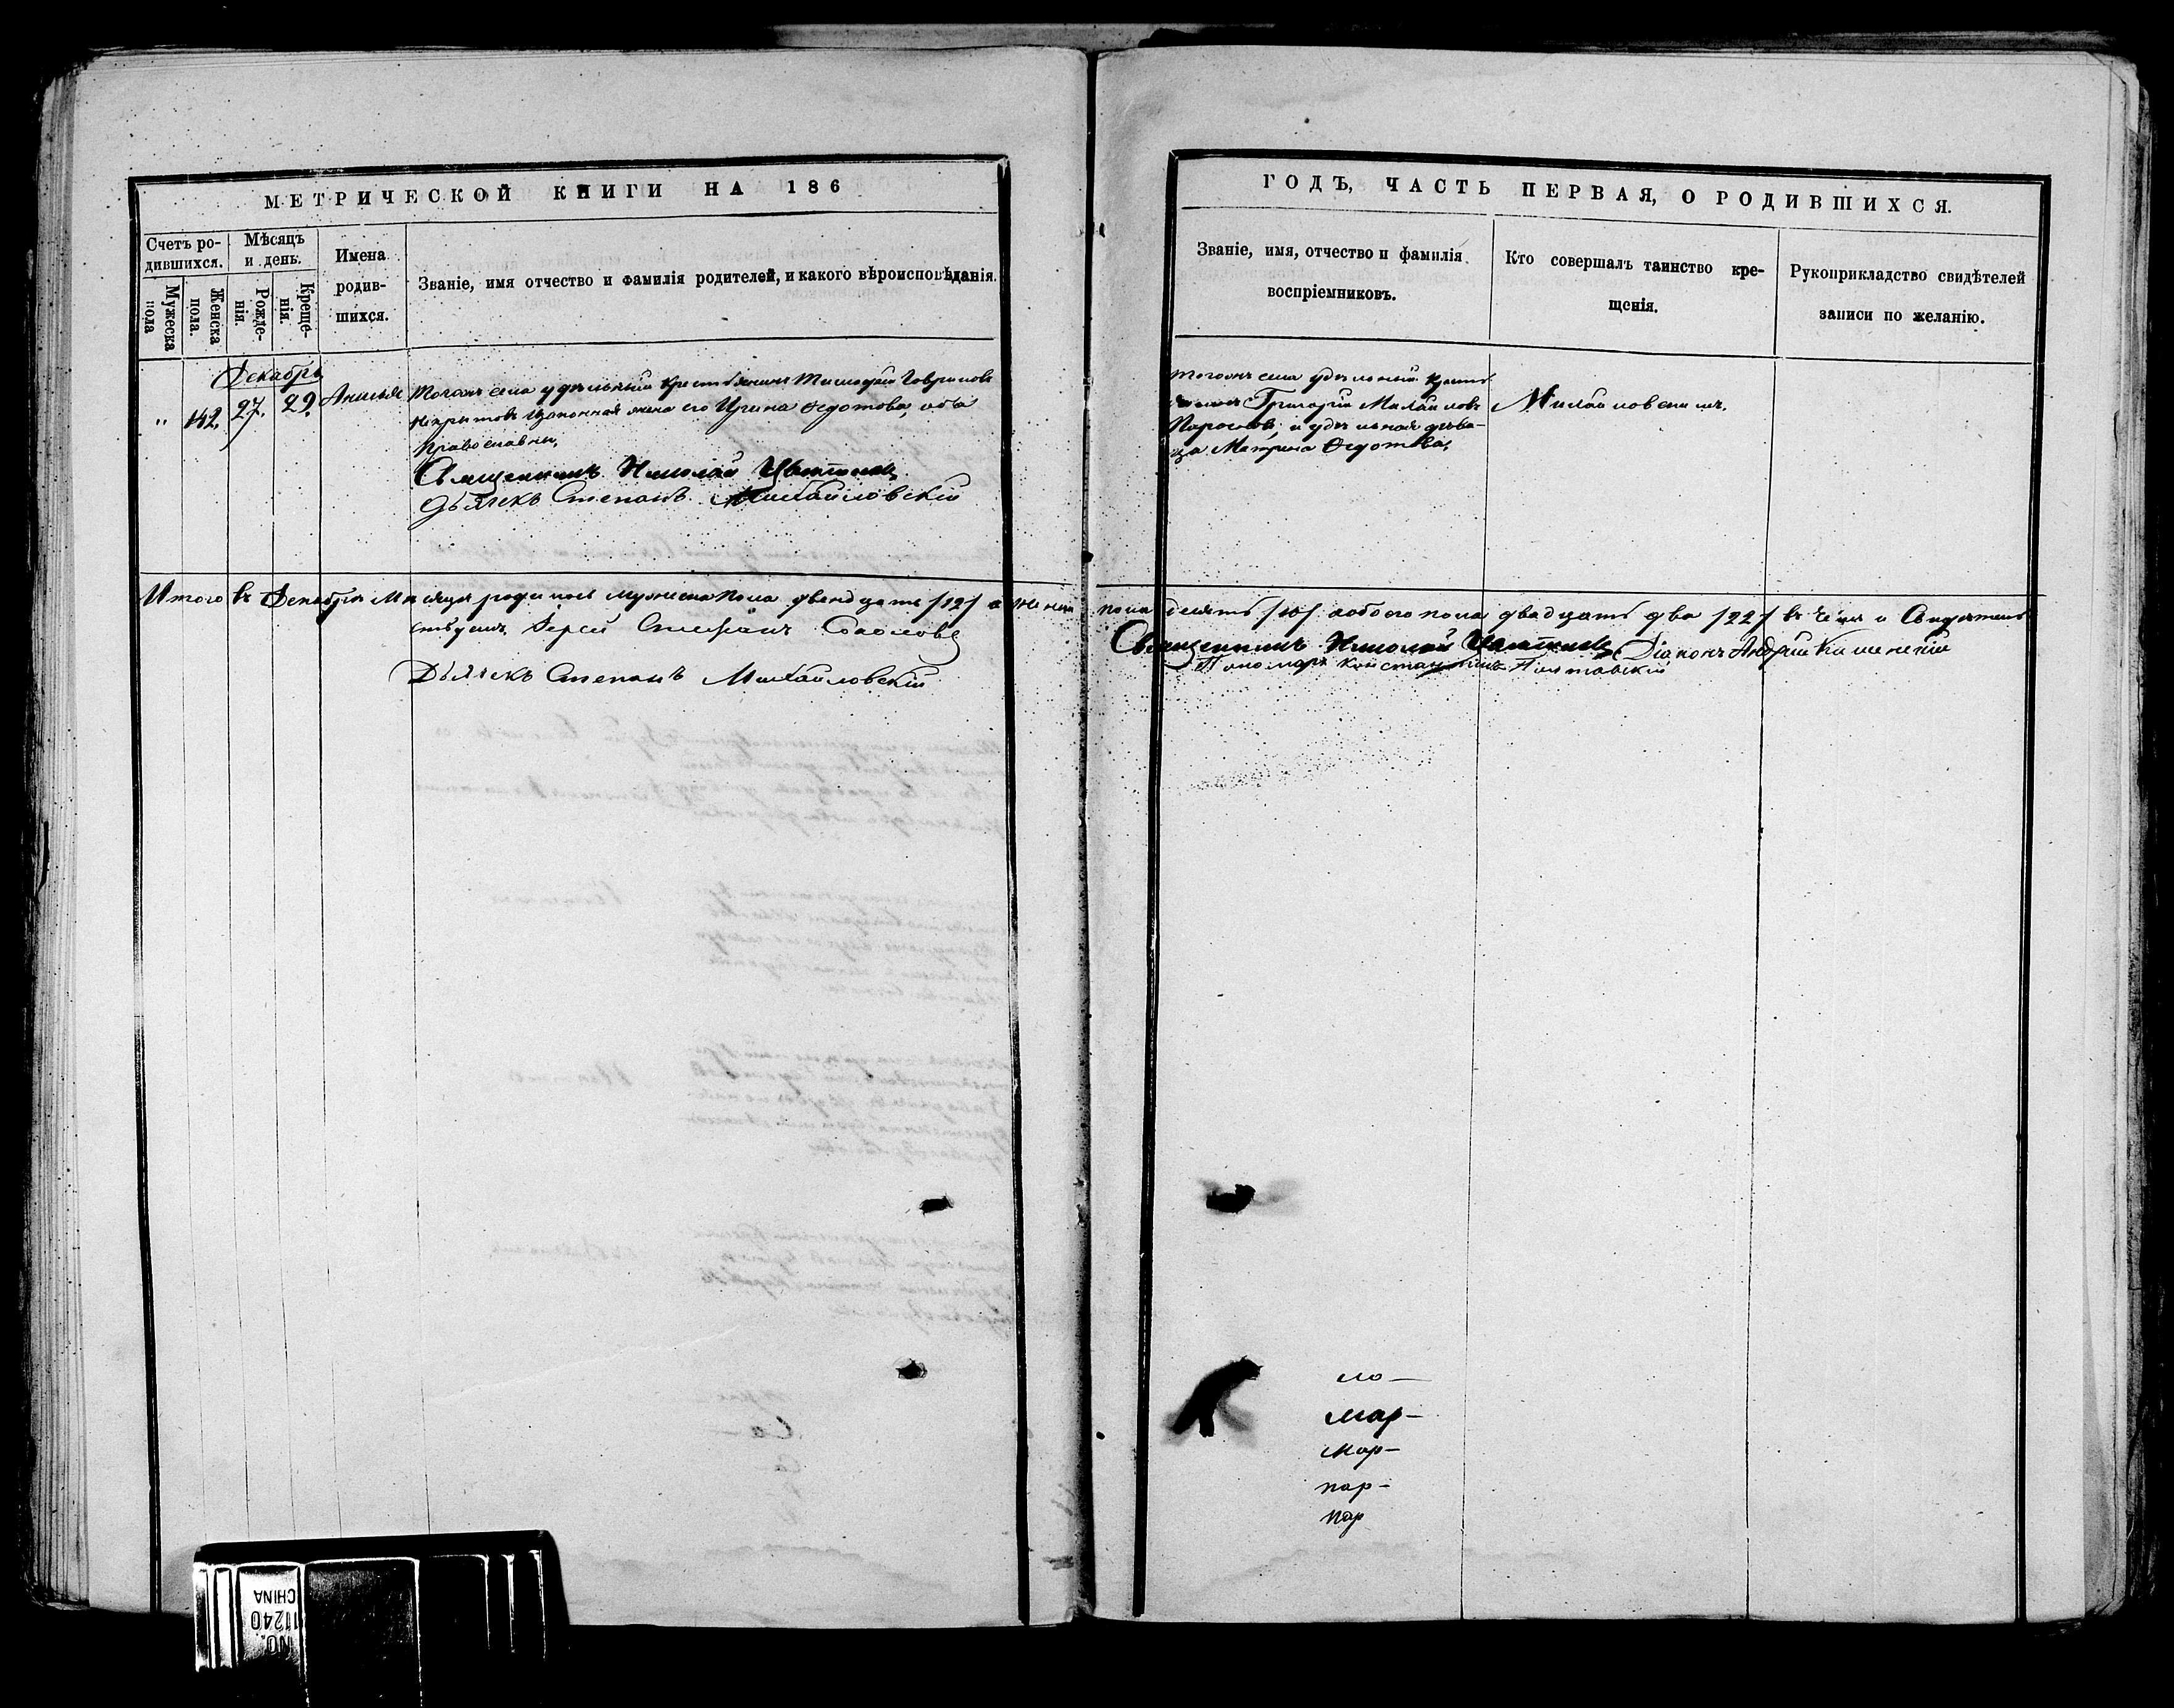 МЕТРИЧЕСКОЙ КНИГИ НА 186
Счетъ ро-
дившихся.
Мѣсяцъ
и день.
Имена
родив-
шихся.
Званіе, имя отчество и фамилія родителей, и какого вѣроисповѣданія.
Мужеска
пола
Женска
пола.
Рожде-
нія.
Креще-
нія.
Декабрь
" 142. 27. 29. Анисья
Тогожъ села удѣльный крестьянинъ Тимофей Гавриловъ
законная жена его Ирина Ѳедотова, оба
Православны.
Священникъ Николай
Дьячекъ Степанъ Михайловскій
Итого въ Декабрѣ Мѣсяцѣ родилось мужеска пола двенадцать /12/ а женска
Іерей Стефанъ Соколовъ
Дьячекъ Степанъ Михайловскій
ГОДЪ, ЧАСТЬ ПЕРВАЯ, О РОДИВШИХСЯ.
Званіе, имя, отчество и фамилія
воспріемниковъ.
Кто совершалъ таинство кре-
щенія.
Рукоприкладство свидѣтелей
записи по желанію.
тогожъ села удѣльный крестья-
нинъ Григорій Михайловъ
и удѣльная дѣви-
ца Матрина Ѳедотова.
пола десять /10/ а обоего пола двадцать два /22/ въ чемъ и
Священникъ Николай Діаконъ Андрей
Пономарь Константинъ Полтавскій
ло—
мар—
мар—
пар—
пар
NO.
11240
CHINA